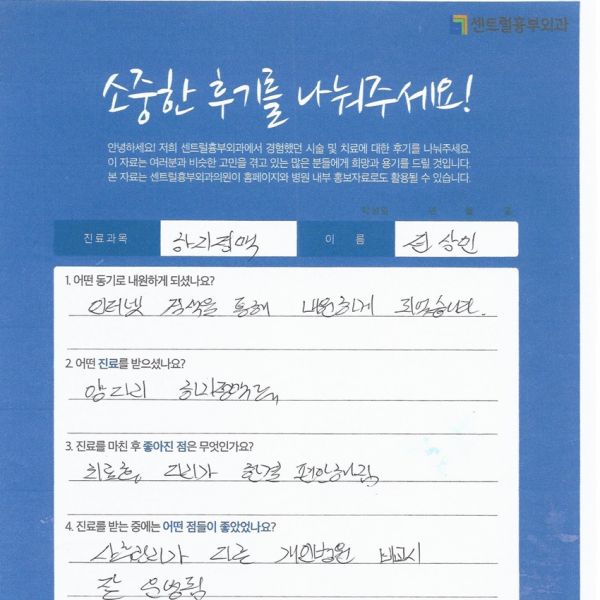 센트럴흉부외과
소중한 후기를 나눠주세요!
안녕하세요! 저희 센트럴흉부외과에서 경험했던 시술 및 치료에 대한 후기를 나눠주세요.
이 자료는 여러분과 비슷한 고민을 겪고 있는 많은 분들에게 희망과 용기를 드릴 것입니다.
본 자료는 센트럴흉부외과의원이 홈페이지와 병원 내부 홍보자료로도 활용될 수 있습니다.
작성일 년 월 일
진료과목 하지정맥 이 름 상인
1. 어떤 동기로 내원하게 되셨나요?
인터넷 검색을 통해 내원하게 되었습니다.
2. 어떤 진료를 받으셨나요?
양다리 하지정맥류
3. 진료를 마친 후 좋아진 점은 무엇인가요?
치료후 다리가 한결 편안해짐
4. 진료를 받는 중에는 어떤 점들이 좋았었나요?
다른 개인병원 비교시
잘 운영됨